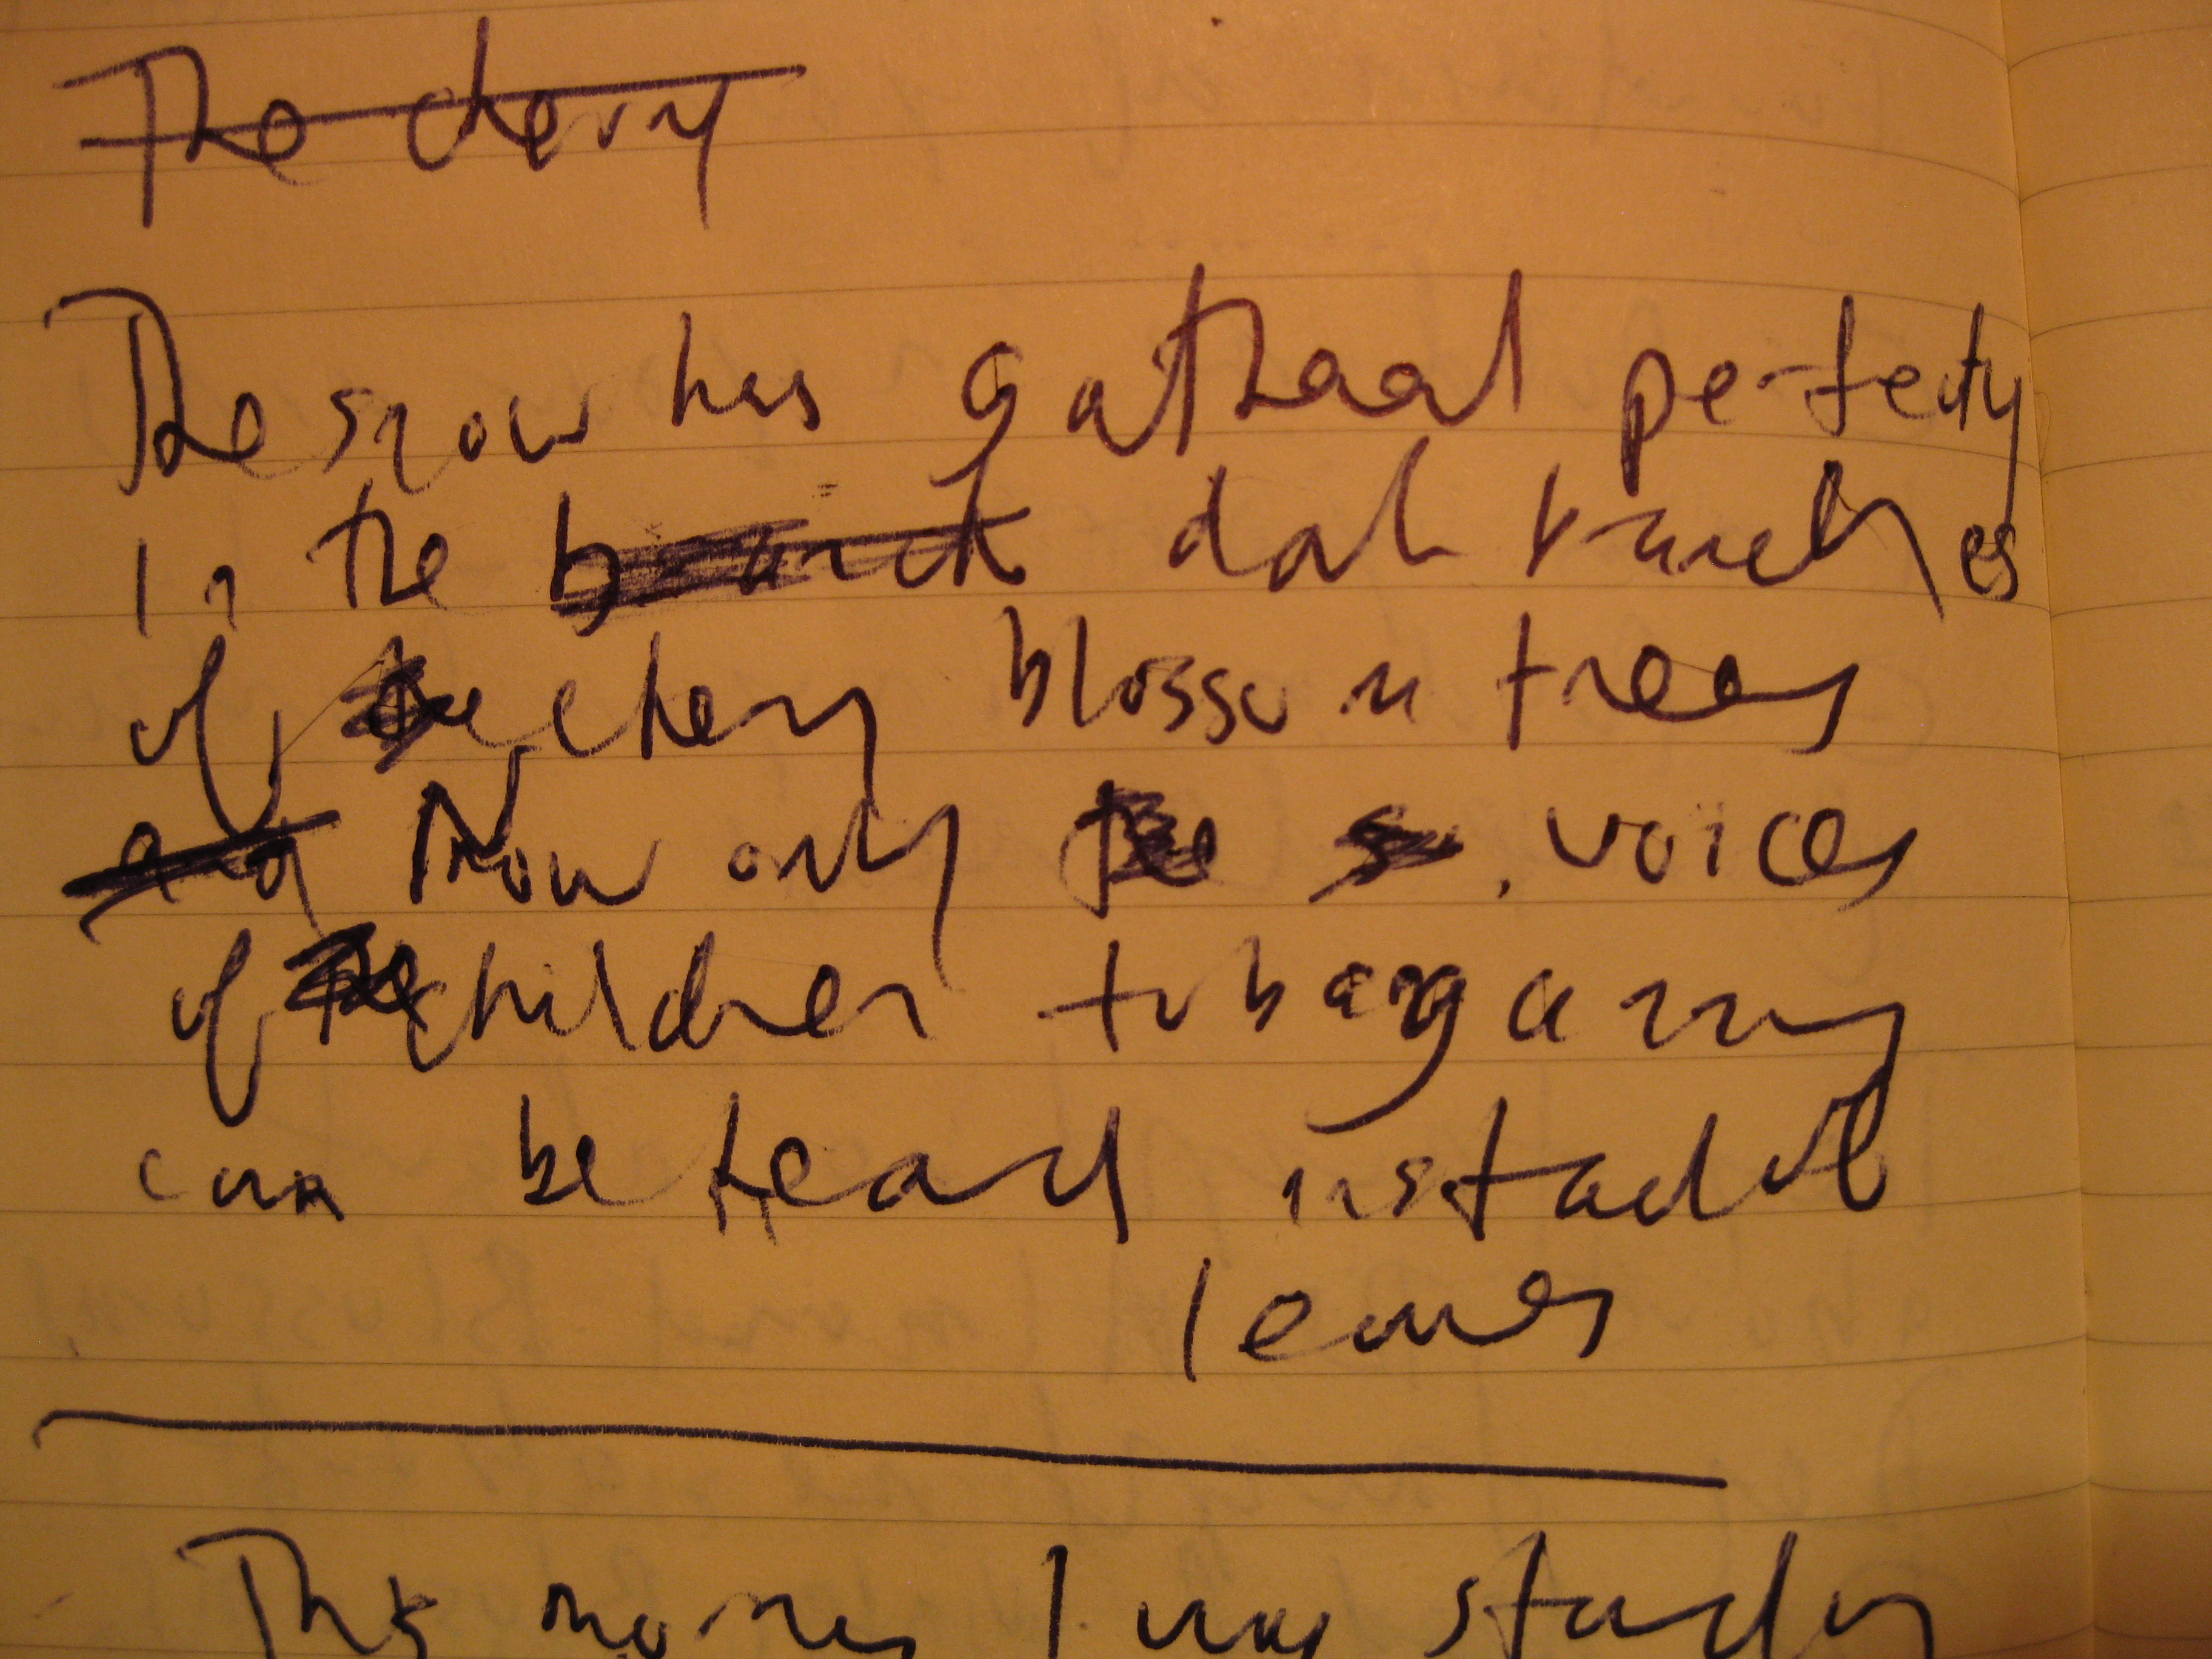 The cherry
The snow has gathered perfectly
in the branch dark branches
of the cherry blossom trees
and Now only the voices
of the children tobagganing
can be heard instead of
leaves
This morning I was